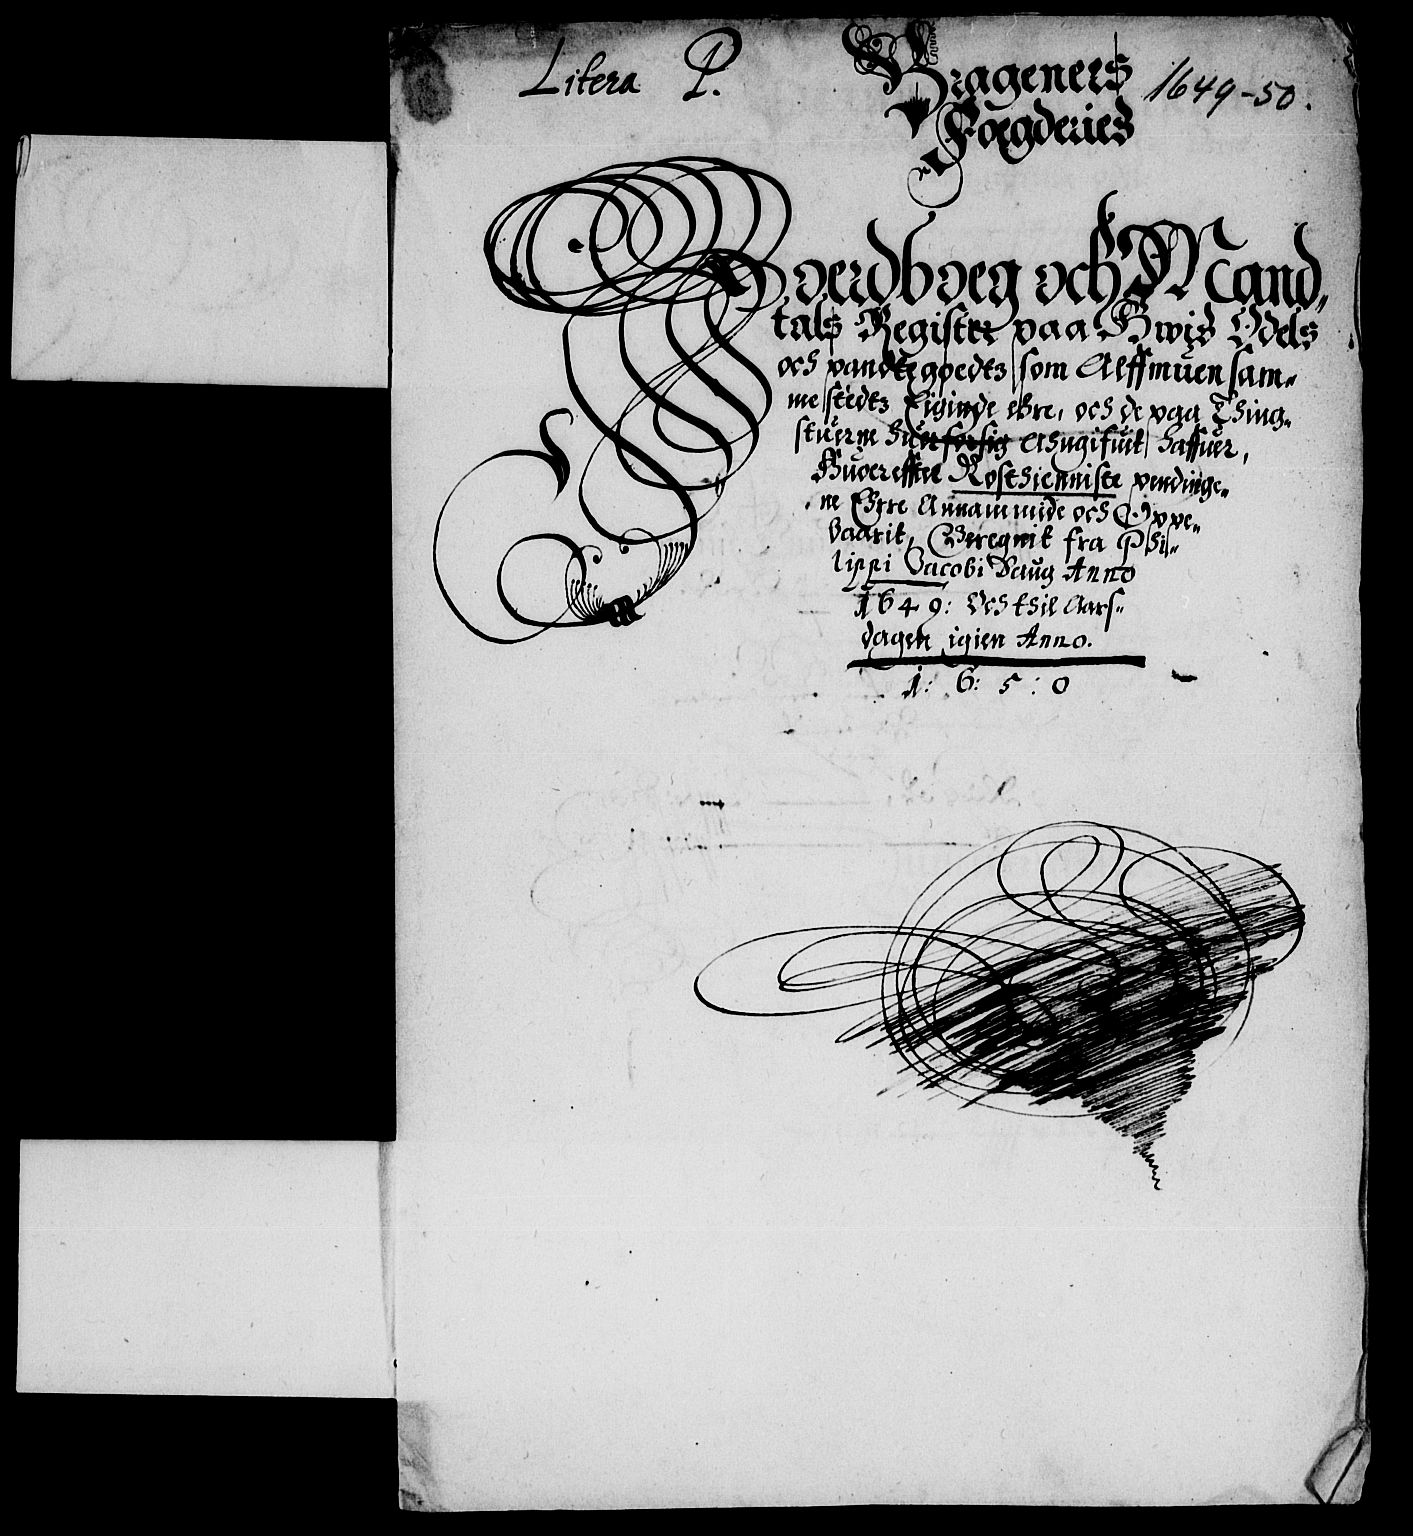 Litera P.
Brageners
Foegderies
1649-50.
Joerdboeg och Mand„
tals Register paa Hwis Odels
och pandtegoedtz som Alffmuen sam„
me stedtz Eiginde ehre, och de paa Thing„
stuerne Angifuit haffuer,
Huoreffter Rosthienniste pendinge„
ne Ehre Annammede och Oppe„
baarit, Beregnit fra Phi„
lippi Jacobi Daug Anno
1649: Och thil Aars„
dagen igien Anno.
1: 6: 5: 0